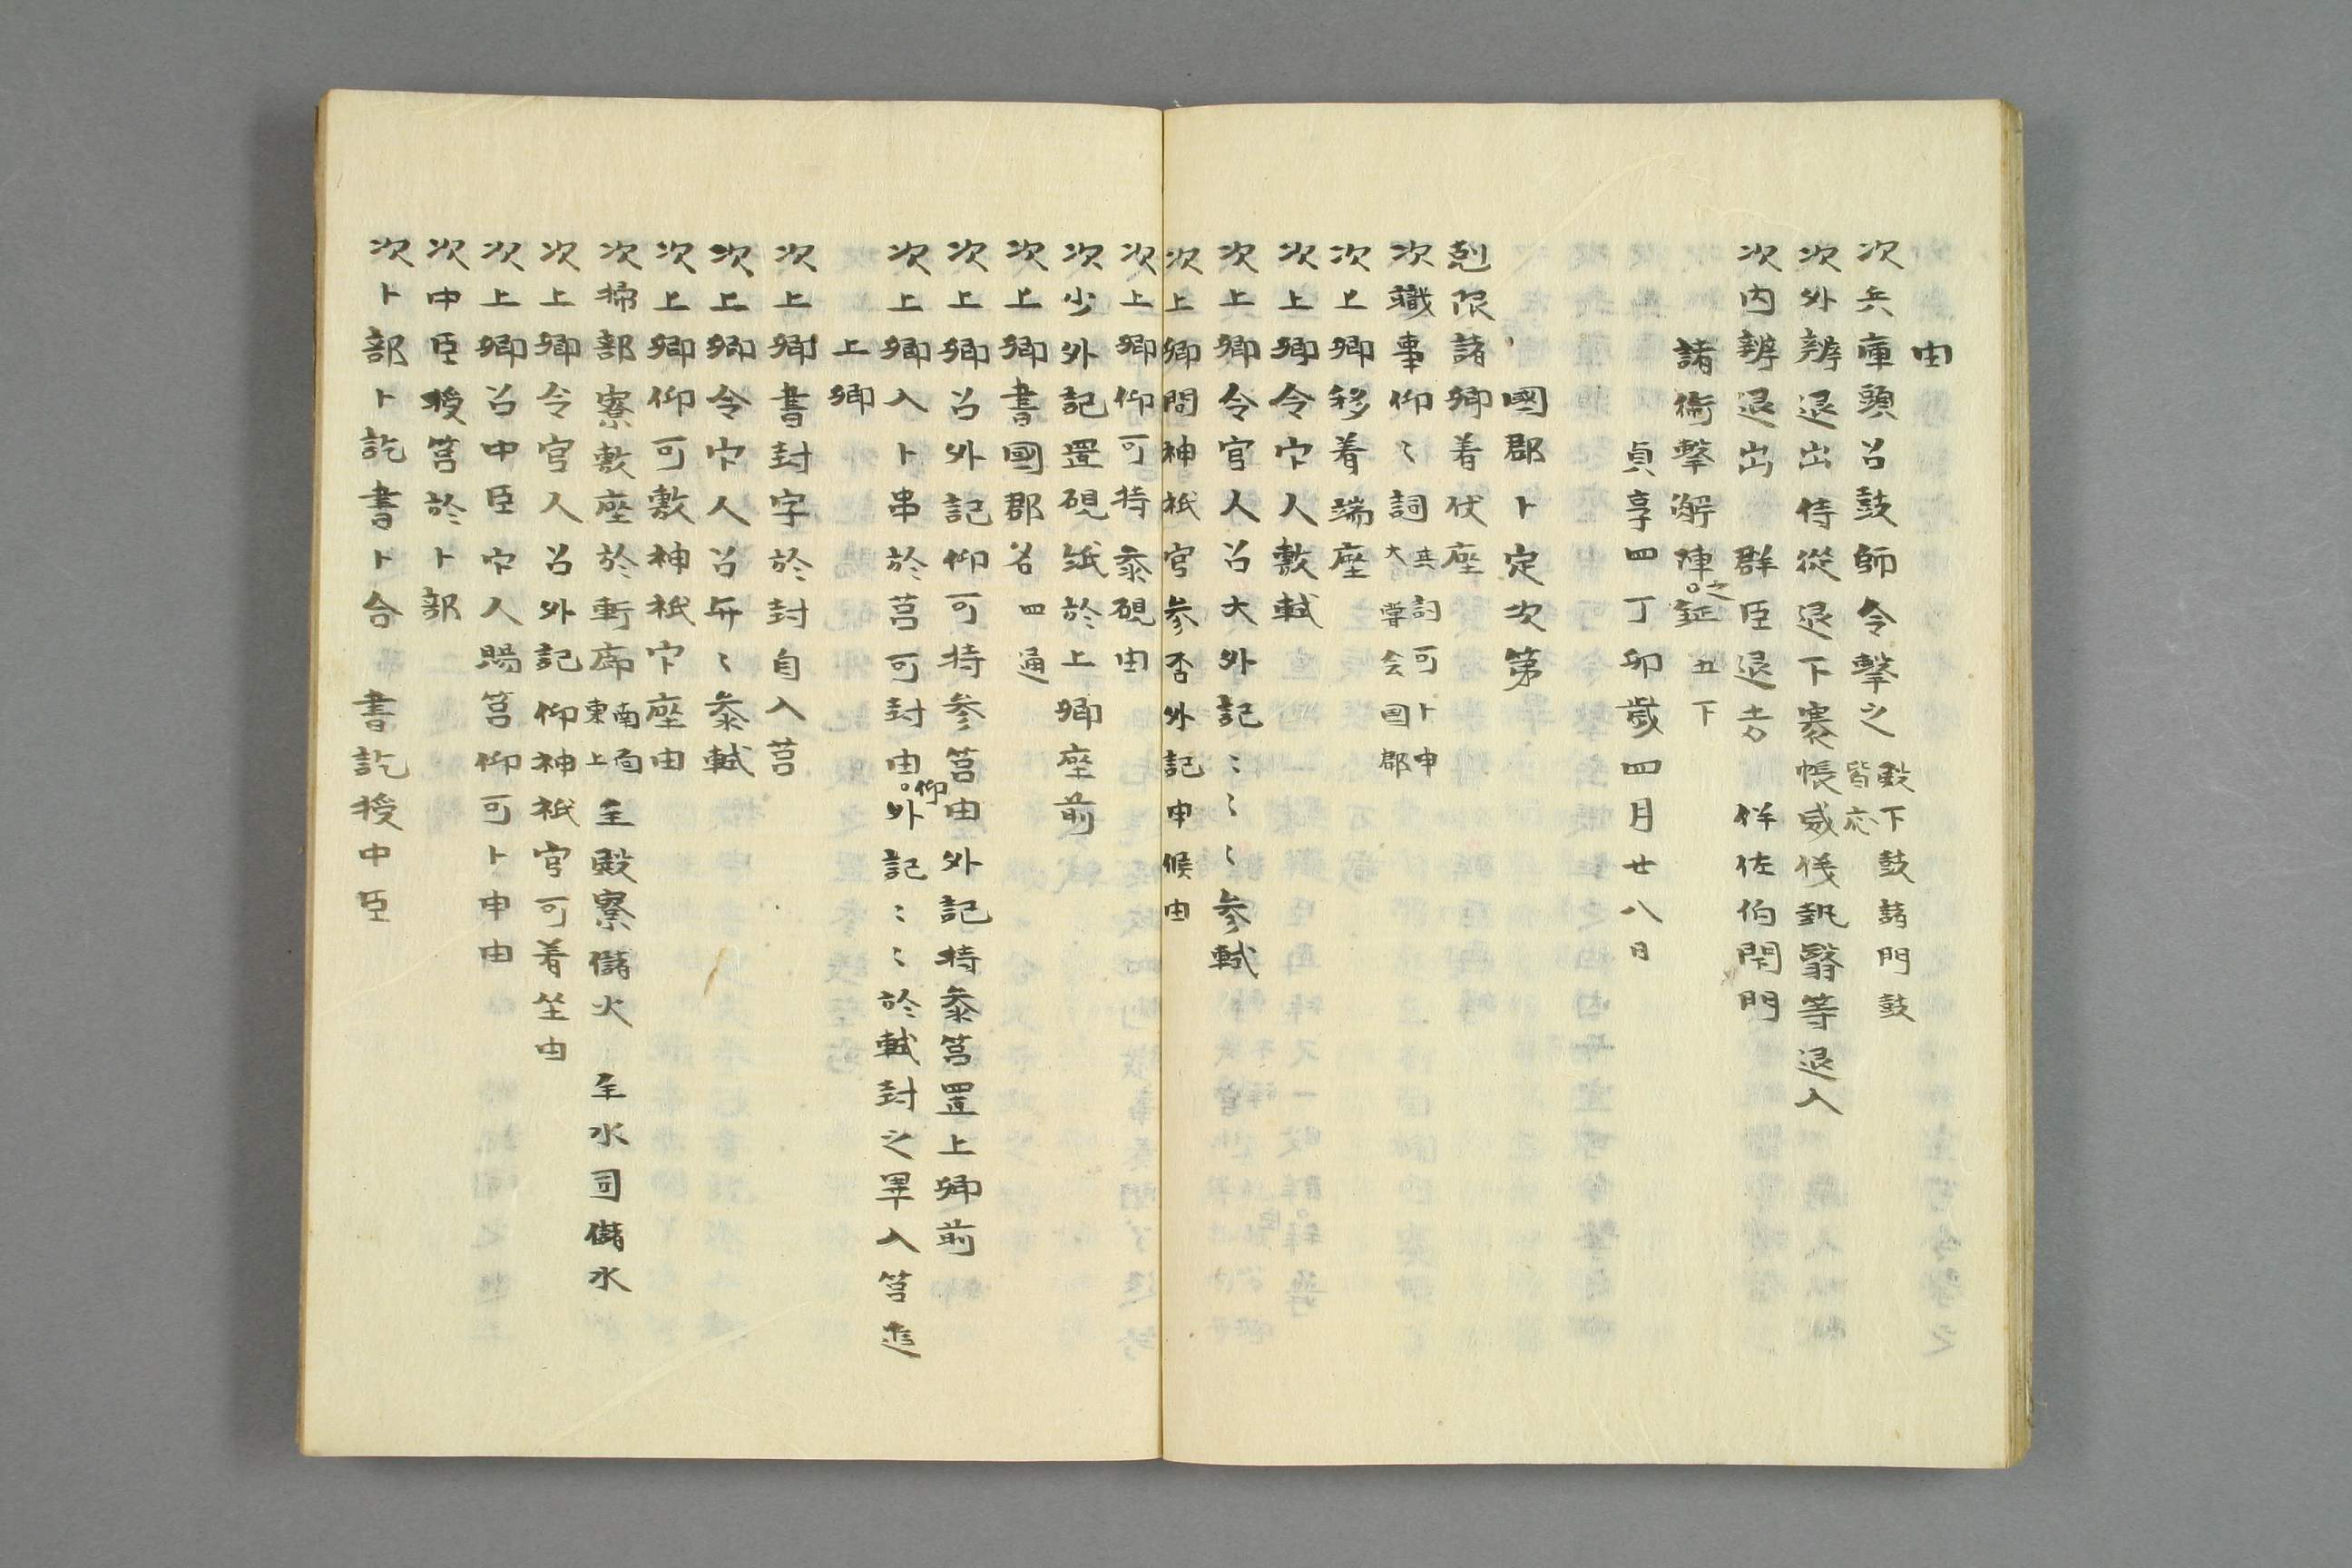 由
次兵庫頭召鼓師令撃之殿下鼓諸門鼓皆応
次外辨退出侍從退下褰帳威儀執翳等退入
次内辨退出　群臣退出　伴佐伯閇門
諸衛撃解陣之鉦五下
貞享四丁卯歳四月廿八日
國郡卜定次第
剋限諸卿着伏座
次職事仰〻詞其詞可卜申大嘗会国郡
次上卿移着端座
次上卿令宀人敷軾
次上卿令官人召大外記〻〻〻参軾
次上卿問神祇官参否外記申候由
次上卿仰可持参硯由
次少外記置硯紙於上卿座前
次上卿書國郡名四通
次上卿召外記仰可持参筥由外記持参筥置上卿前
次上卿入卜串於莒可封由仰外記〻〻〻於軾封之畢入筥進
上卿
次上卿書封字於封自入莒
次上卿令宀人召弁〻参軾
次上卿仰可敷神祇宀座由
次掃部寮敷座於軒廊南面東上主殿寮儲火　主水司儲水
次上卿令官人召外記仰神祇官可着坐由
次上卿召中臣宀人賜筥仰可卜申由
次中臣授筥於卜部
次卜部卜訖書卜合　書訖授中臣